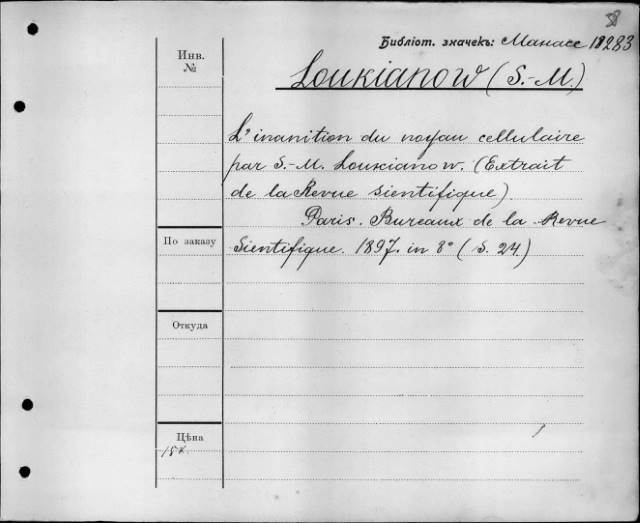 Библіот. значекъ: Манасс 18283
Инв. №
Loukianow (S.-M.)
L'inanition du noyau cellulaire
par S.-M. Loukianow. (Extrait
de la Revue sientifique).
Paris. Bureaux de la Revue
Sientifique. 1897. in 8° (S. 24.)
По заказу
Откуда
Цѣна
15к.